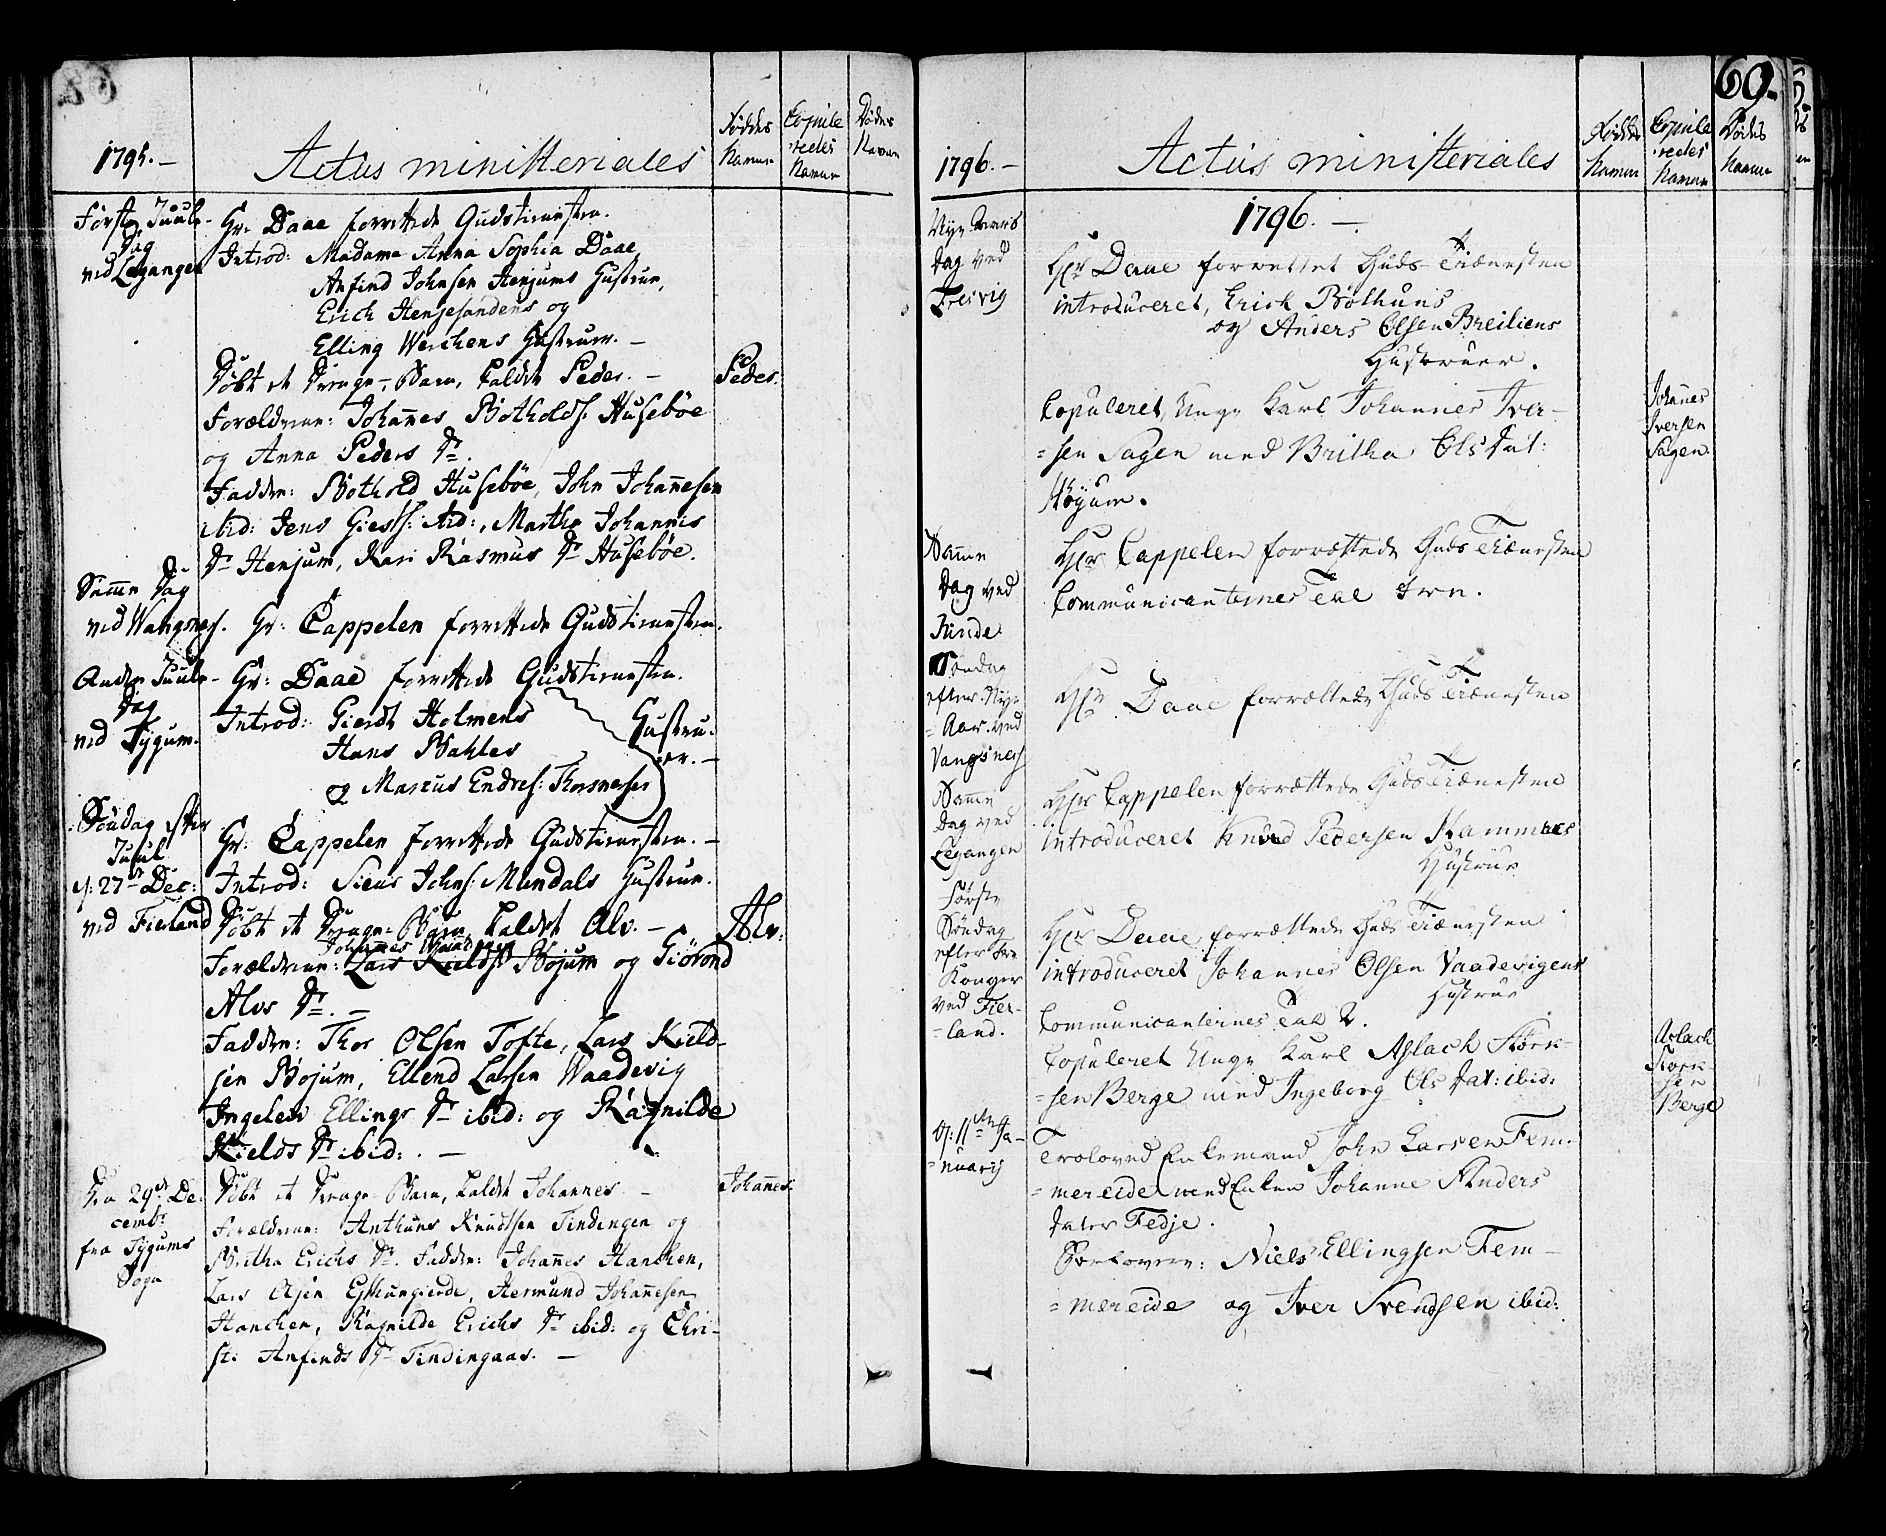 1795.–
Actus ministeriales
Føddes Navne
Copuleredes Navne
Dødes Navne
Første Juule-
Dag
ved Leganger
Hr. Daae forrettede Gudstienesten.
Introd: Madame Anna Sophia Daae
Anfind Johnsen Henjums Hustrue,
Erich Henjesandens og
Elling Werchens Hustruer. –
Døbt et Drenge-Barn, kaldet Peder. –
Peder.
Forældrene: Johannes Botholds: Husebøe
og Anna Peders Dr.
Faddere: Bothold Husebøe, John Johannesen
ibid: Jens Giests: ibid:, Martha Johannis
Dr Henjum, Kari Rasmus Dr Husebøe.
Samme Dag
ved Wangsnes.
Hr: Cappelen forrettede Gudstienesten.
Anden Juule-
Dag
ved Tygum.
Hr: Daae forrettede Gudstienesten.
Introd: Gierdt Holmens
Hans Bahles
og Marcus Endres: Thorsnæsses
Hustru-
er. –
Søndag efter
Juul
d: 27de Dec:
ved Fierland
Hr: Cappelen forrettede Gudstienesten. –
Introd: Siens Johns: Mundals Hustrue.
Døbt et Drenge-Barn, kaldet Alv. –
Alv.
Johannes
Forældrene: Lars Kields: Bojum og Giørond
Alvs Dr. –
Faddere: Thor Olsen Tofte, Lars Kield-
sen Bojum, Ellend Larsen Waadevig
Ingeleiv Ellings Dr ibid: og Ragnilde
Kields Dr ibid: . –
Den 29de De-
cembr:
fra Tygums
Sogn
Døbt et Drenge-Barn, kaldet Johannes –
Johannes.
Forældrene: Anthuns Knudtsen Tindingen og
Britha Erichs Dr. Faddere: Johannes Hanchen,
Lars Olsen Eschungierde, Hermund Johannesen
Hanchen, Ragnilde Erichs Dr ibid: og Chri-
sti Anfinds Dr Tindingaas. –
69.
1796. –
Actus ministeriales
Føddes Navne
Copuleredes Navne
Dødes Navne
1796. –
Nye Aars
Dag ved
Fresvig
Hr Daae forrettet Guds Tiænesten
introduceret, Erich Bothuns
og Anders Olsen Breiliens
Hustruer.
Copuleret, Unge Karl Johannes Iver-
=sen Sagen med Britha Ols Dat:
Høyum.
Johanes
Iversen
Sagen.
Samme
Dag ved
Tiude
Hr Cappelen forrættede Guds Tiænesten
Communicanternes Tal tre.
Søndag
efter Nye
=Aar ved
Vangsnes
Hr Daae forrættede Guds Tiænesten
Samme
Dag ved
Leganger
Hr Cappelen forrættede Guds Tiænesten
introduceret Knud Pedersen Hammers
Hustrue
Første
Søndag
efter tre
Konger
ved Fier-
=land.
Hr Daae forrættede Guds Tiænesten
introduceret Johannes Olsen Vaadevigens
Hustrue
Communicanternes Tal 2.
Copuleret Unge Karl Aslach Stork-
=sen Berge med Ingeborg Ols Dat: ibid:
Aslach
Stork-
sen
Berge
d: 11te Ja-
=nuarij
Troloved Enkemand John Larsen Fem-
=mereide med Enken Johanne Anders
Dater Fedje.
Forlovere: Niels Ellingsen Fem-
=mereide og Iver Svendsen ibid: